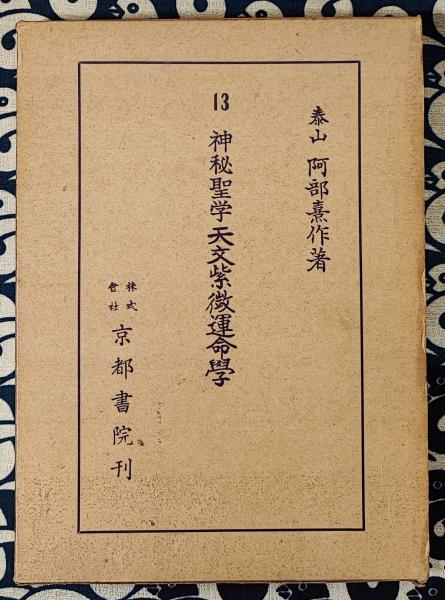 泰山 阿部熹作著
13 神秘聖学 天文紫微運命學
株式會社 京都書院刊